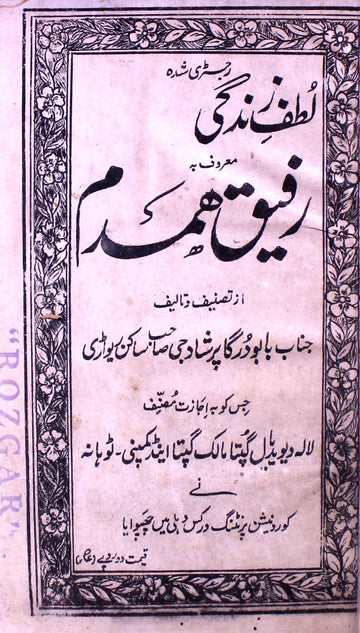 رجسٹری شدہ
لطف زندگی
معروف بہ
رفیق ہمدم
از تصنیف و تالیف
جناب بابو درگا پرشاد جی صاحب ساکن ریواڑی
جس کو بہ اجازت مصنّف
لالہ دیودیال گپتا مالک گپتا اینڈ کمپنی - ٹوہانہ
نے
کورونیشن پرنٹنگ ورکس دہلی میں چھپوایا
قیمت دو روپے
"ROZGAR"